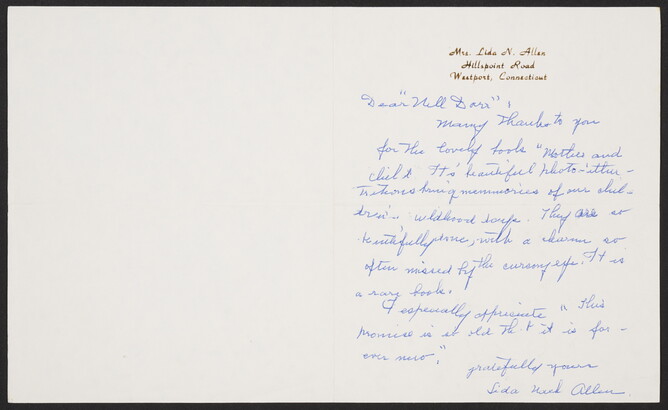 Mrs. Lida N. Allen
Hillspoint Road
Westport, Connecticut
Dear "Nell Dorr";
Many Thanks to you
for the lovely book "Mother and
Child". It's beautiful photo-illus-
trations bring memories of our chil-
dren's days. They are so
beautifully done, with a charm so
often missed by the cursory eye. It is
a rare book.
I especially appreciate "This
promise is so old that it is for-
ever new".
gratefully yours
Lida Allen.